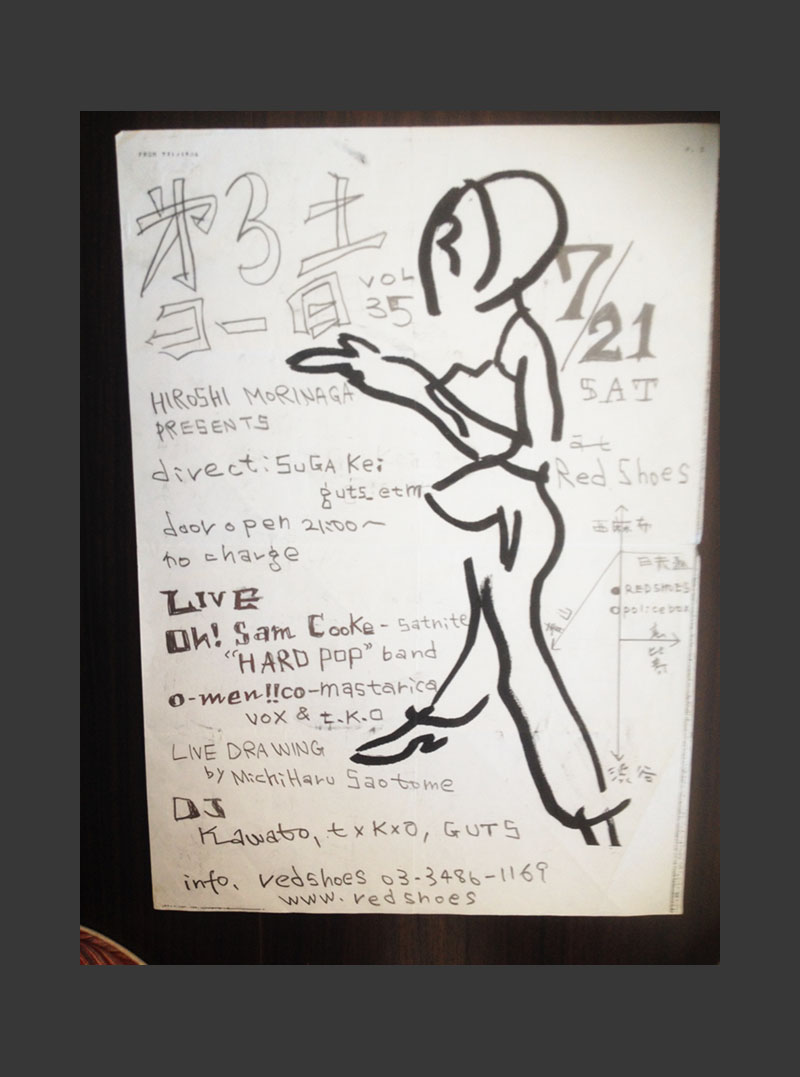 第3土
ヨー日
VOL
35
7/21
SAT
at
Red Shoes
HIROSHI MORINAGA
PRESENTS
direct: SUGA Kei
guts_etm
door open 21:00~
no charge
LIVE
Oh! Sam Cooke - satnite
"HARD POP" band
o-men!!co-mastarica
vox & t.k.o
LIVE DRAWING
by MichiHaru Saotome
DJ
Kawato, t x K x O, GUTS
info. redshoes 03-3486-1169
www.redshoes
西麻布
REDSHOES
police box
青山
恵比寿
渋谷